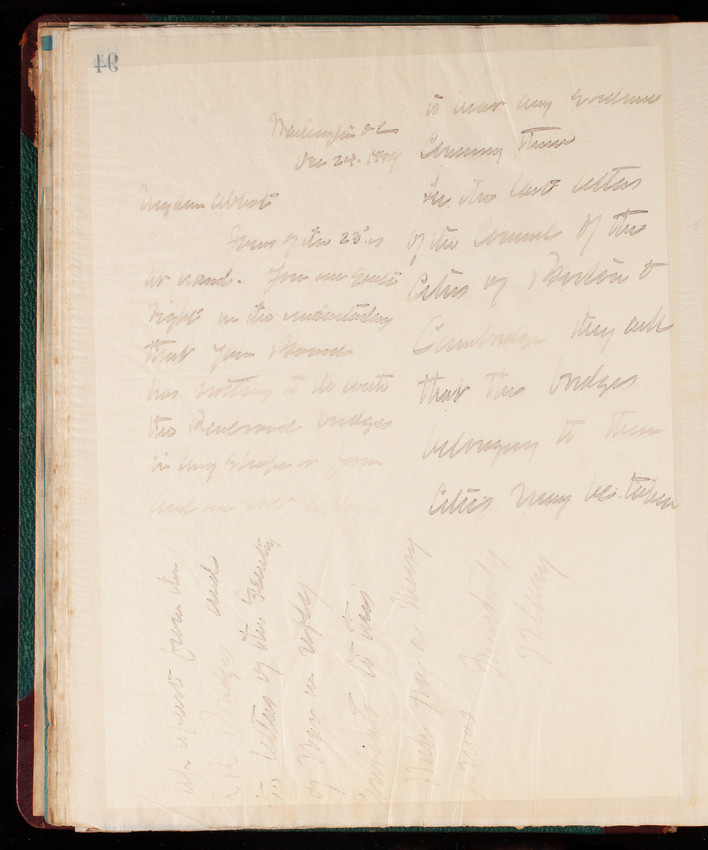 46
Washington DC
Dec 24. 1889
My dear Abbot
Yours of the 23d is
at hand. You are quite
right in the understanding
that your Board
has nothing to do with
the Railroad bridges
in any shape or form
and are not
to hear any evidence
Concerning them
In the last letters
of the Counsel of the
Cities of Boston &
Cambridge they ask
that the bridges
belonging to them
Cities may be taken
up apart from the
RR Bridges and
the letters of the Secretary
of War in reply
to this
Wish you a Merry
Yours